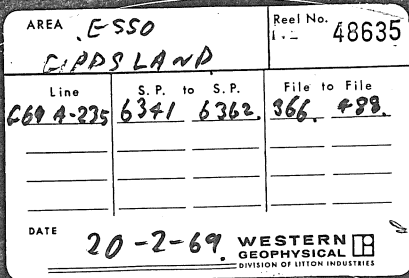 AREA ESSO
GIPPSLAND
Reel No. 48635
Line S.P. to S.P. File to File
G69 A-235 6341 6362. 366. 488.
DATE 20-2-69.
WESTERN
GEOPHYSICAL
DIVISION OF LITTON INDUSTRIES